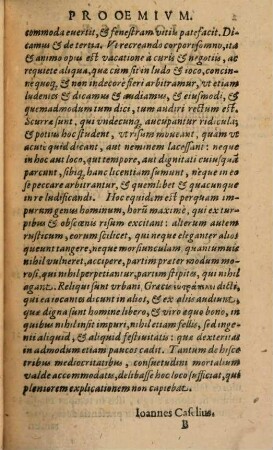 PROOEMIVM. 2
commoda euertit, & fenestram vitiis patefacit. Di-
camus & de tertia. Vt recreando corpori somno, ita
& animo opus est vacatione a curis & negotiis, ac
requiete aliqua, quæ cum sit in ludo & ioco, concin-
neque, & non indecorè fieri arbitramur, vt etiam
ludentes & dicamus & audiamus, & eiusmodi, &
quemadmodum tum dici, tum audiri rectum est.
Scurræ sunt, qui vndecunq; aucupantur ridicula,
& potius hoc student, vt risum moueant, quàm vt
acutè quid dicant, aut neminem lacessant: neque
in hoc aut loco, aut tempore, aut dignitati cuiusquã
parcunt, sibiq; hanc licentiam sumunt, neque in eo
se peccare arbitrantur, & quemlibet & quacunque
in re ludificandi. Hoc equidem est perquam im-
purum genus hominum, horũ maximè, qui ex tur-
pibus & obscœnis risum excitant: alterum autem
rusticum, eorum scilicet, qui neque eleganter alios
queunt tangere, neque morsiunculam quantumuis
nihil vulneret, accipere, partim præter modum mo-
rosi, qui nihil perpetiantur, partim stipites, qui nihil
agant. Reliqui sunt vrbani, Græcis dicti,
qui ea iocantes dicunt in alios, & ex aliis audiunt,
quæ digna sunt homine libero, & viro æquo bono, in
quibus nihil insit impuri, nihil etiam fellis, sed in-
genii aliquid, & aliquid festiuitatis: quæ dexteritas
in admodum etiam paucos cadit. Tantum de hisce
tribus mediocritatibus, consuetudini mortalium
valde accommodatis, delibasse hoc loco sufficiat, qui
pleniorem explicationem non capiebat.
Ioannes Caselius.
B